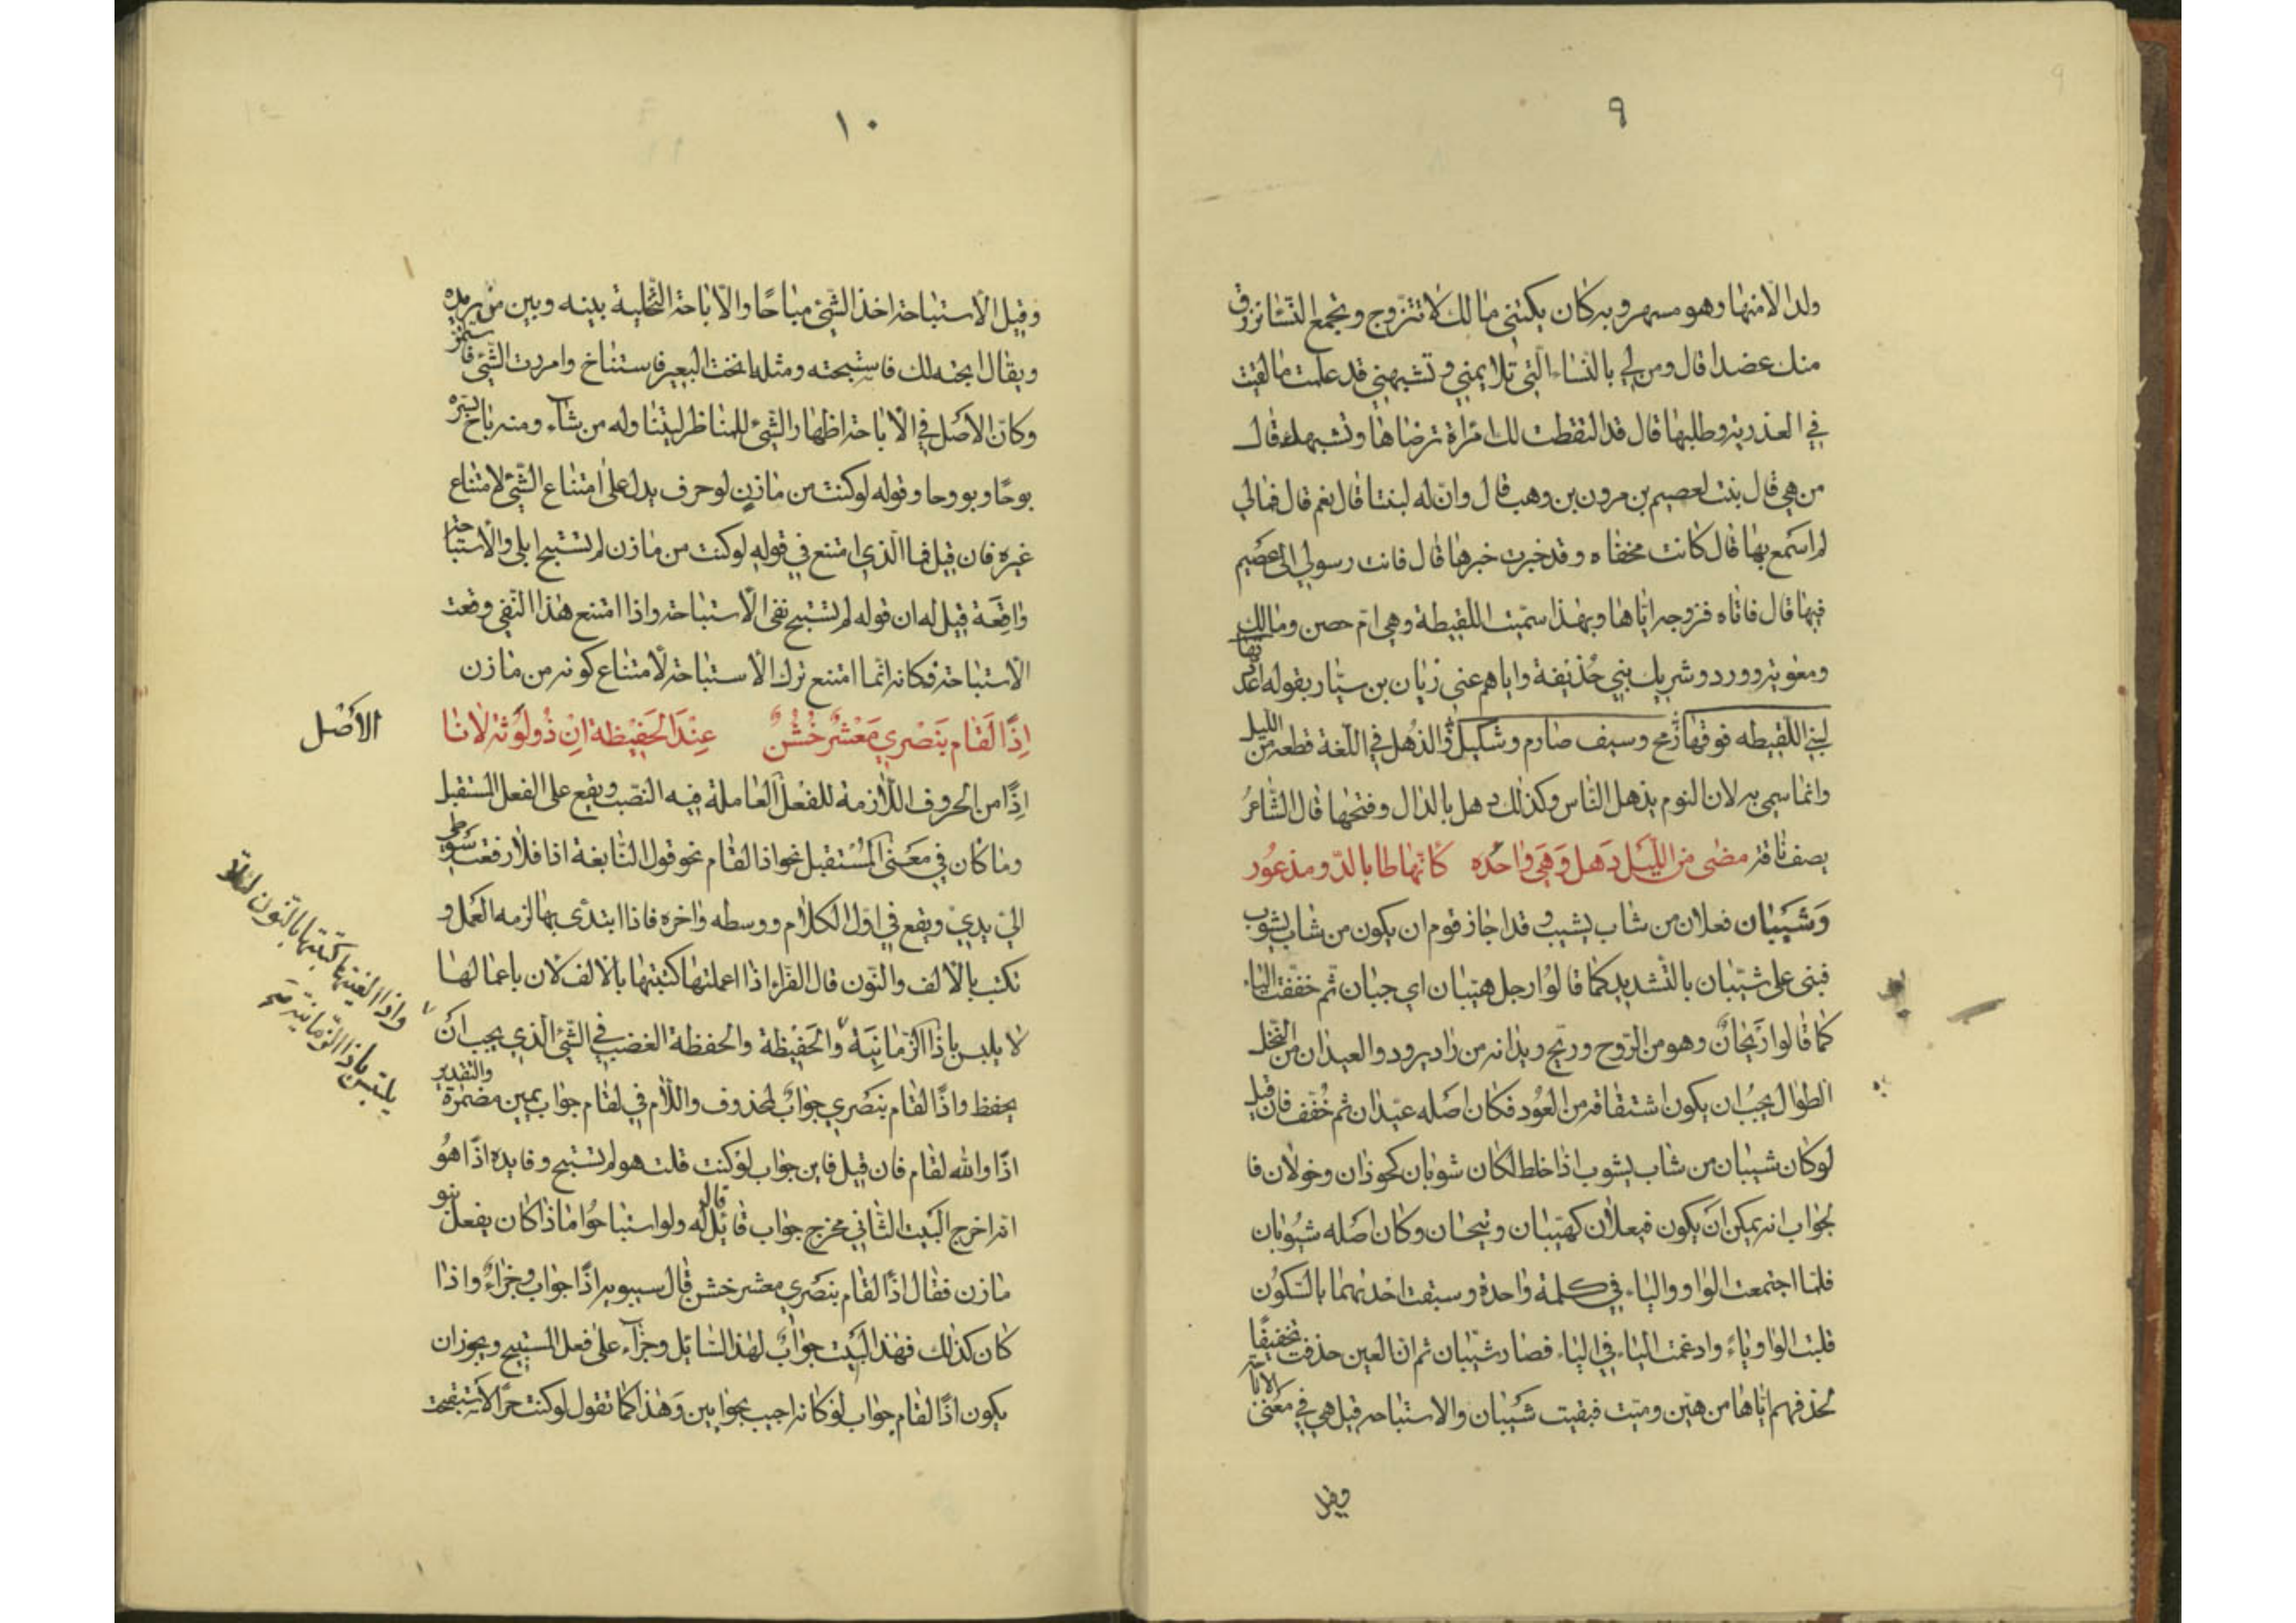 ٩
ولدا لامنها وهو مسهر وبه كان يكتنى مالك لا تتزوج وتجمع النساء نرزق
منك عضدا قال ومن لي بالنساء التي تلايمني وتشبهني قد علمت ما لقيت
في العذرية وطلبها قال قد التقطت لك امراة ترضاها وتشبهك قال
من هي قال بنت لعصيم بن مرون بن وهب قال وان له لبنتا قال نعم قال فمالي
لم اسمع بها قال كانت مخفاه وقد خبرت خبرها قال فانت رسولي الى عصيم
فيها قال فاتاه فزوجه اياها وبهذا سميت اللقيطة وهي ام حصن ومالك
ومعوية وورد وشريك بني حذيفة واياهم عنى زبان بن سيار بقوله
لبني اللقيطه فوقها رمح وسيف صارم وشكيل والذهل في اللغة قطعه من الليل
وانما سمي به لان النوم يذهل الناس وكذلك دهل بالدال وفتحها قال الشاعر
يصف ناقة مضى من الليل دهل وهي واحده كانها طا بالدو مذعور
وشيبان فعلان من شاب يشيب وقد اجاز قوم ان يكون من شاب يشوب
فبنى على شيّبان بالتشديد كما قالوا رجل هيّبان اي جبان ثم خففت الياء
كما قالوا ريحان وهو من الروح وريح ويذانه من راد يرود والعيدان من النخل
الطوال يجب ان يكون اشتقاقه من العود فكان اصله عيّدان ثم خفف فان قيل
لو كان شيبان من شاب يشوب اذا خلط لكان شوبان كحوذان وخولان فا
لجواب انه يمكن ان يكون فيعلان كهيّبان وتيحان وكان اصله شيوبان
فلما اجتمعت الواو والياء في كلمة واحدة وسبقت احديهما بالسكون
قلبت الواو ياءً وادغمت الياء في الياء فصار شيّبان ثم ان العين حذفت تخفيفًا
كحذفهم اياها من هيّن وميّت فبقيت شيبان والاستباحه قيل هي في معنى الاباحة
وقيل
١٠
وقيل الاستباحة اخذ الشئ مباحًا والاباحة التخلية بينه وبين من يريده
ويقال ابحته لك فاستبحته ومثله انخت البعير فاستناخ وامررت الشئ فاستمر
وكان الاصل في الاباحة اظهار الشئ للمناظر ليتناوله من شاء ومنه باح بسره
بوحًا وبووحا وقوله لو كنت من مازن لو حرف يدل على امتناع الشئ لامتناع
غيره فان قيل فما الذي امتنع في قوله لو كنت من مازن لم تستبح ابلي والاستباحة
واقعة قيل له ان قوله لم تستبح نفى الاستباحة واذا امتنع هذا النفي وقعت
الاستباحة فكانه انما امتنع ترك الاستباحة لامتناع كونه من مازن
اِذًا لَقَام بنَصْري مَعْشرٌ خُشُنٌ عِنْدَ الحَفيْظة اِنْ ذُو لُوْثة لانا
الاصل
اِذًا من الحروف اللازمة للفعل العاملة فيه النصب ويقع على الفعل المستقبل
وما كان في معنى المستقبل نحو اذا لقام نحو قول النابغة اذا فلا رفعت سوطي
اليّ يديّ ويقع في اول الكلام ووسطه واخره فاذا ابتدى بها لزمه العمل و
تكتب بالالف والنون قال الفراء اذا اعملتها كتبتها بالالف لان باعمالها
لا يلبس باذا الزمانية والحفيظة والحفظة الغضب في الشئ الذي يجب ان
واذا الغيتها كتبتها بالنون لئلا
يلتبس باذا الزمانية صح
يحفظ واذًا لقام بنصري جواب لمحذوف واللام في لقام جواب يمين مضمرة والتقدير
اذًا والله لقام فان قيل فاين جواب لو كنت قلت هو لم تستبح وفايده اذًا هو
انه اخرج البيت الثاني مخرج جواب قائل قال له ولو استباحوا ماذا كان يفعل بنو
مازن فقال اذًا لقام بنصري معشر خشن قال سيبويه اذًا جواب وجزاءٌ واذا
كان كذلك فهذا البيت جوابٌ لهذا السائل وجزاء على فعل المستبيح ويجوز ان
يكون اذًا لقام جواب لو كانه اجيب بجوابين وهذا كما تقول لو كنت حرًّا لاستقبحت